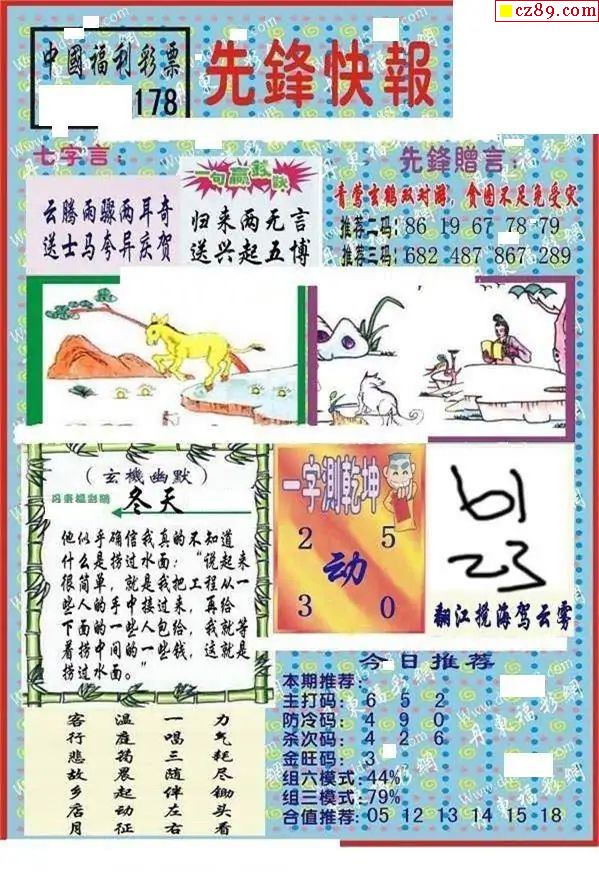 cz89.com
中國福利彩票
178
先鋒快報
七字言：
云腾雨骤两耳奇
送士马夸异庆贺
一句赢钱诀
归来两无言
送兴起五博
先鋒贈言：
青莺玄鹤双对游，贪图不足免受灾
推荐二码：86 19 67 78 79
推荐三码：682 487 867 289
（玄機幽默）
丹東福彩網
冬天
他似乎确信我真的不知道
什么是捞过水面：“说起来
很简单，就是我把工程从一
些人的手中接过来，再给
下面的一些人包给，我就等
着捞中间的一些钱，这就是
捞过水面。”
一字測乾坤
2 5
动
3 0
61
23
翻江搅海驾云雾
今日推荐
本期推荐：
主打码：6 5 2
防冷码：4 9 0
杀次码：4 2 6
金旺码：3
组六模式：44%
组三模式：79%
合值推荐：05 12 13 14 15 18
力气耗尽锄头看
一唱三随伴左右
温庭筠晨起动征
客行悲故乡店月